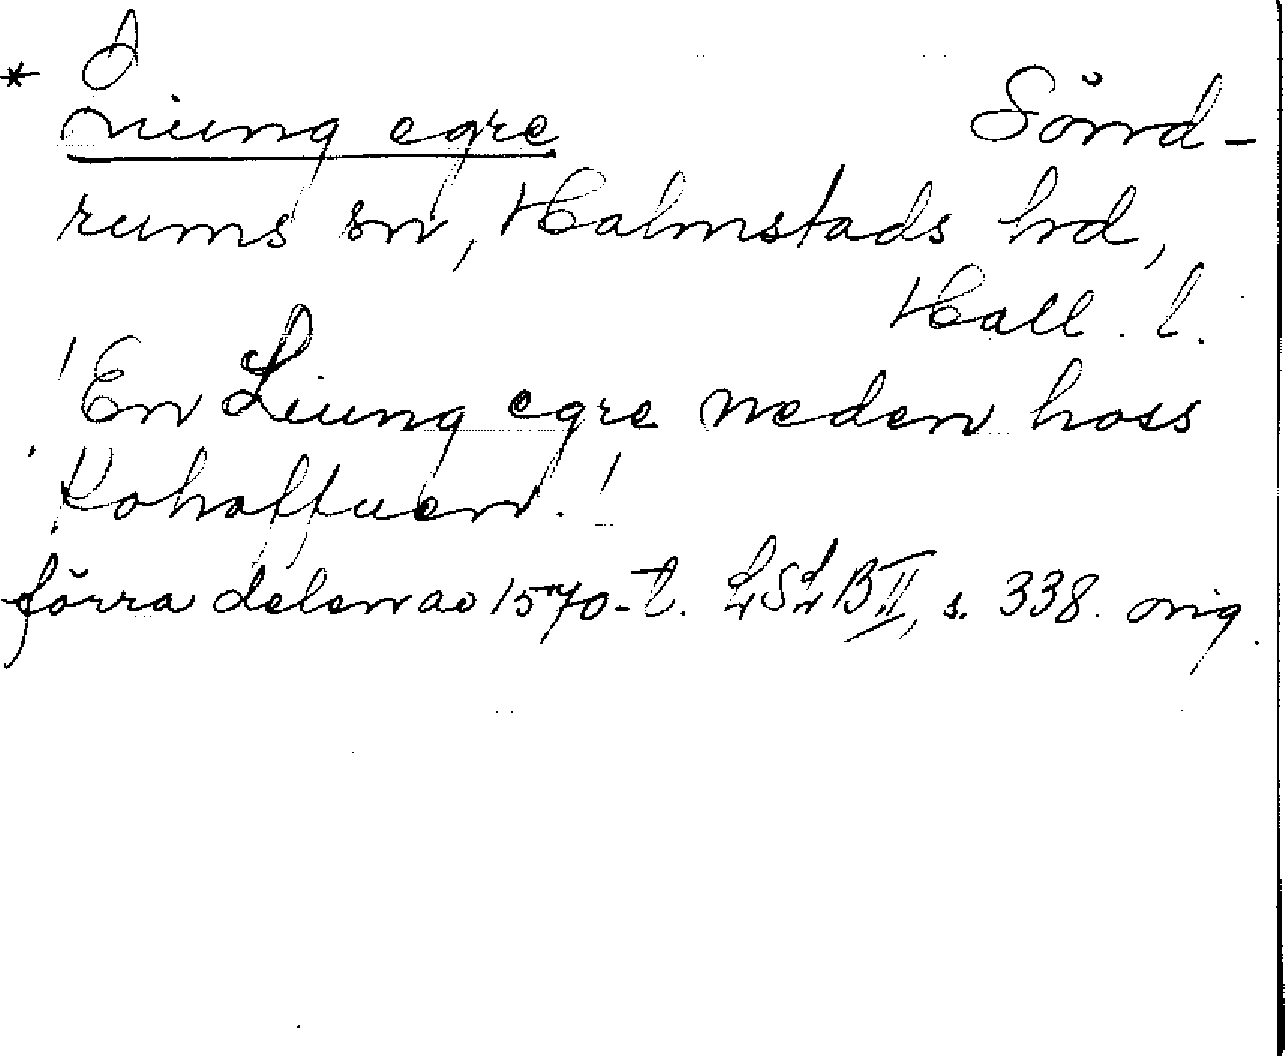 * Liung egre Sönd-
rums sn, Halmstads hd,
Hall. l.
'En Liung egre neden hoss
Kohaffuen.'
förra delen av 1570-t. LSLB II, s. 338. orig.